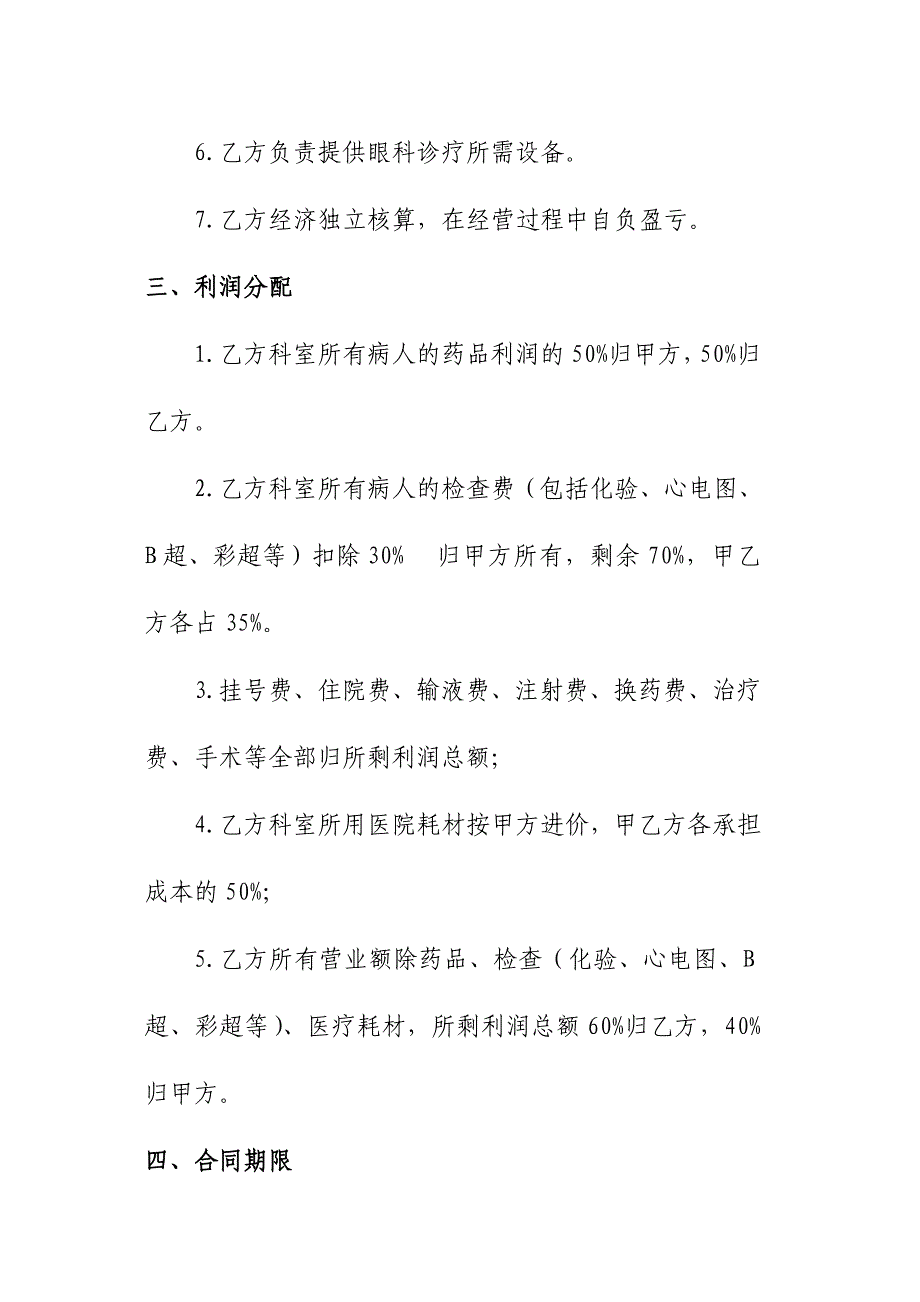 6.乙方负责提供眼科诊疗所需设备。
7.乙方经济独立核算，在经营过程中自负盈亏。
三、利润分配
1.乙方科室所有病人的药品利润的 50%归甲方，50%归
乙方。
2.乙方科室所有病人的检查费（包括化验、心电图、
B 超、彩超等）扣除 30%　归甲方所有，剩余 70%，甲乙
方各占 35%。
3.挂号费、住院费、输液费、注射费、换药费、治疗
费、手术等全部归所剩利润总额；
4.乙方科室所用医院耗材按甲方进价，甲乙方各承担
成本的 50%；
5.乙方所有营业额除药品、检查（化验、心电图、B
超、彩超等）、医疗耗材，所剩利润总额 60%归乙方，40%
归甲方。
四、合同期限